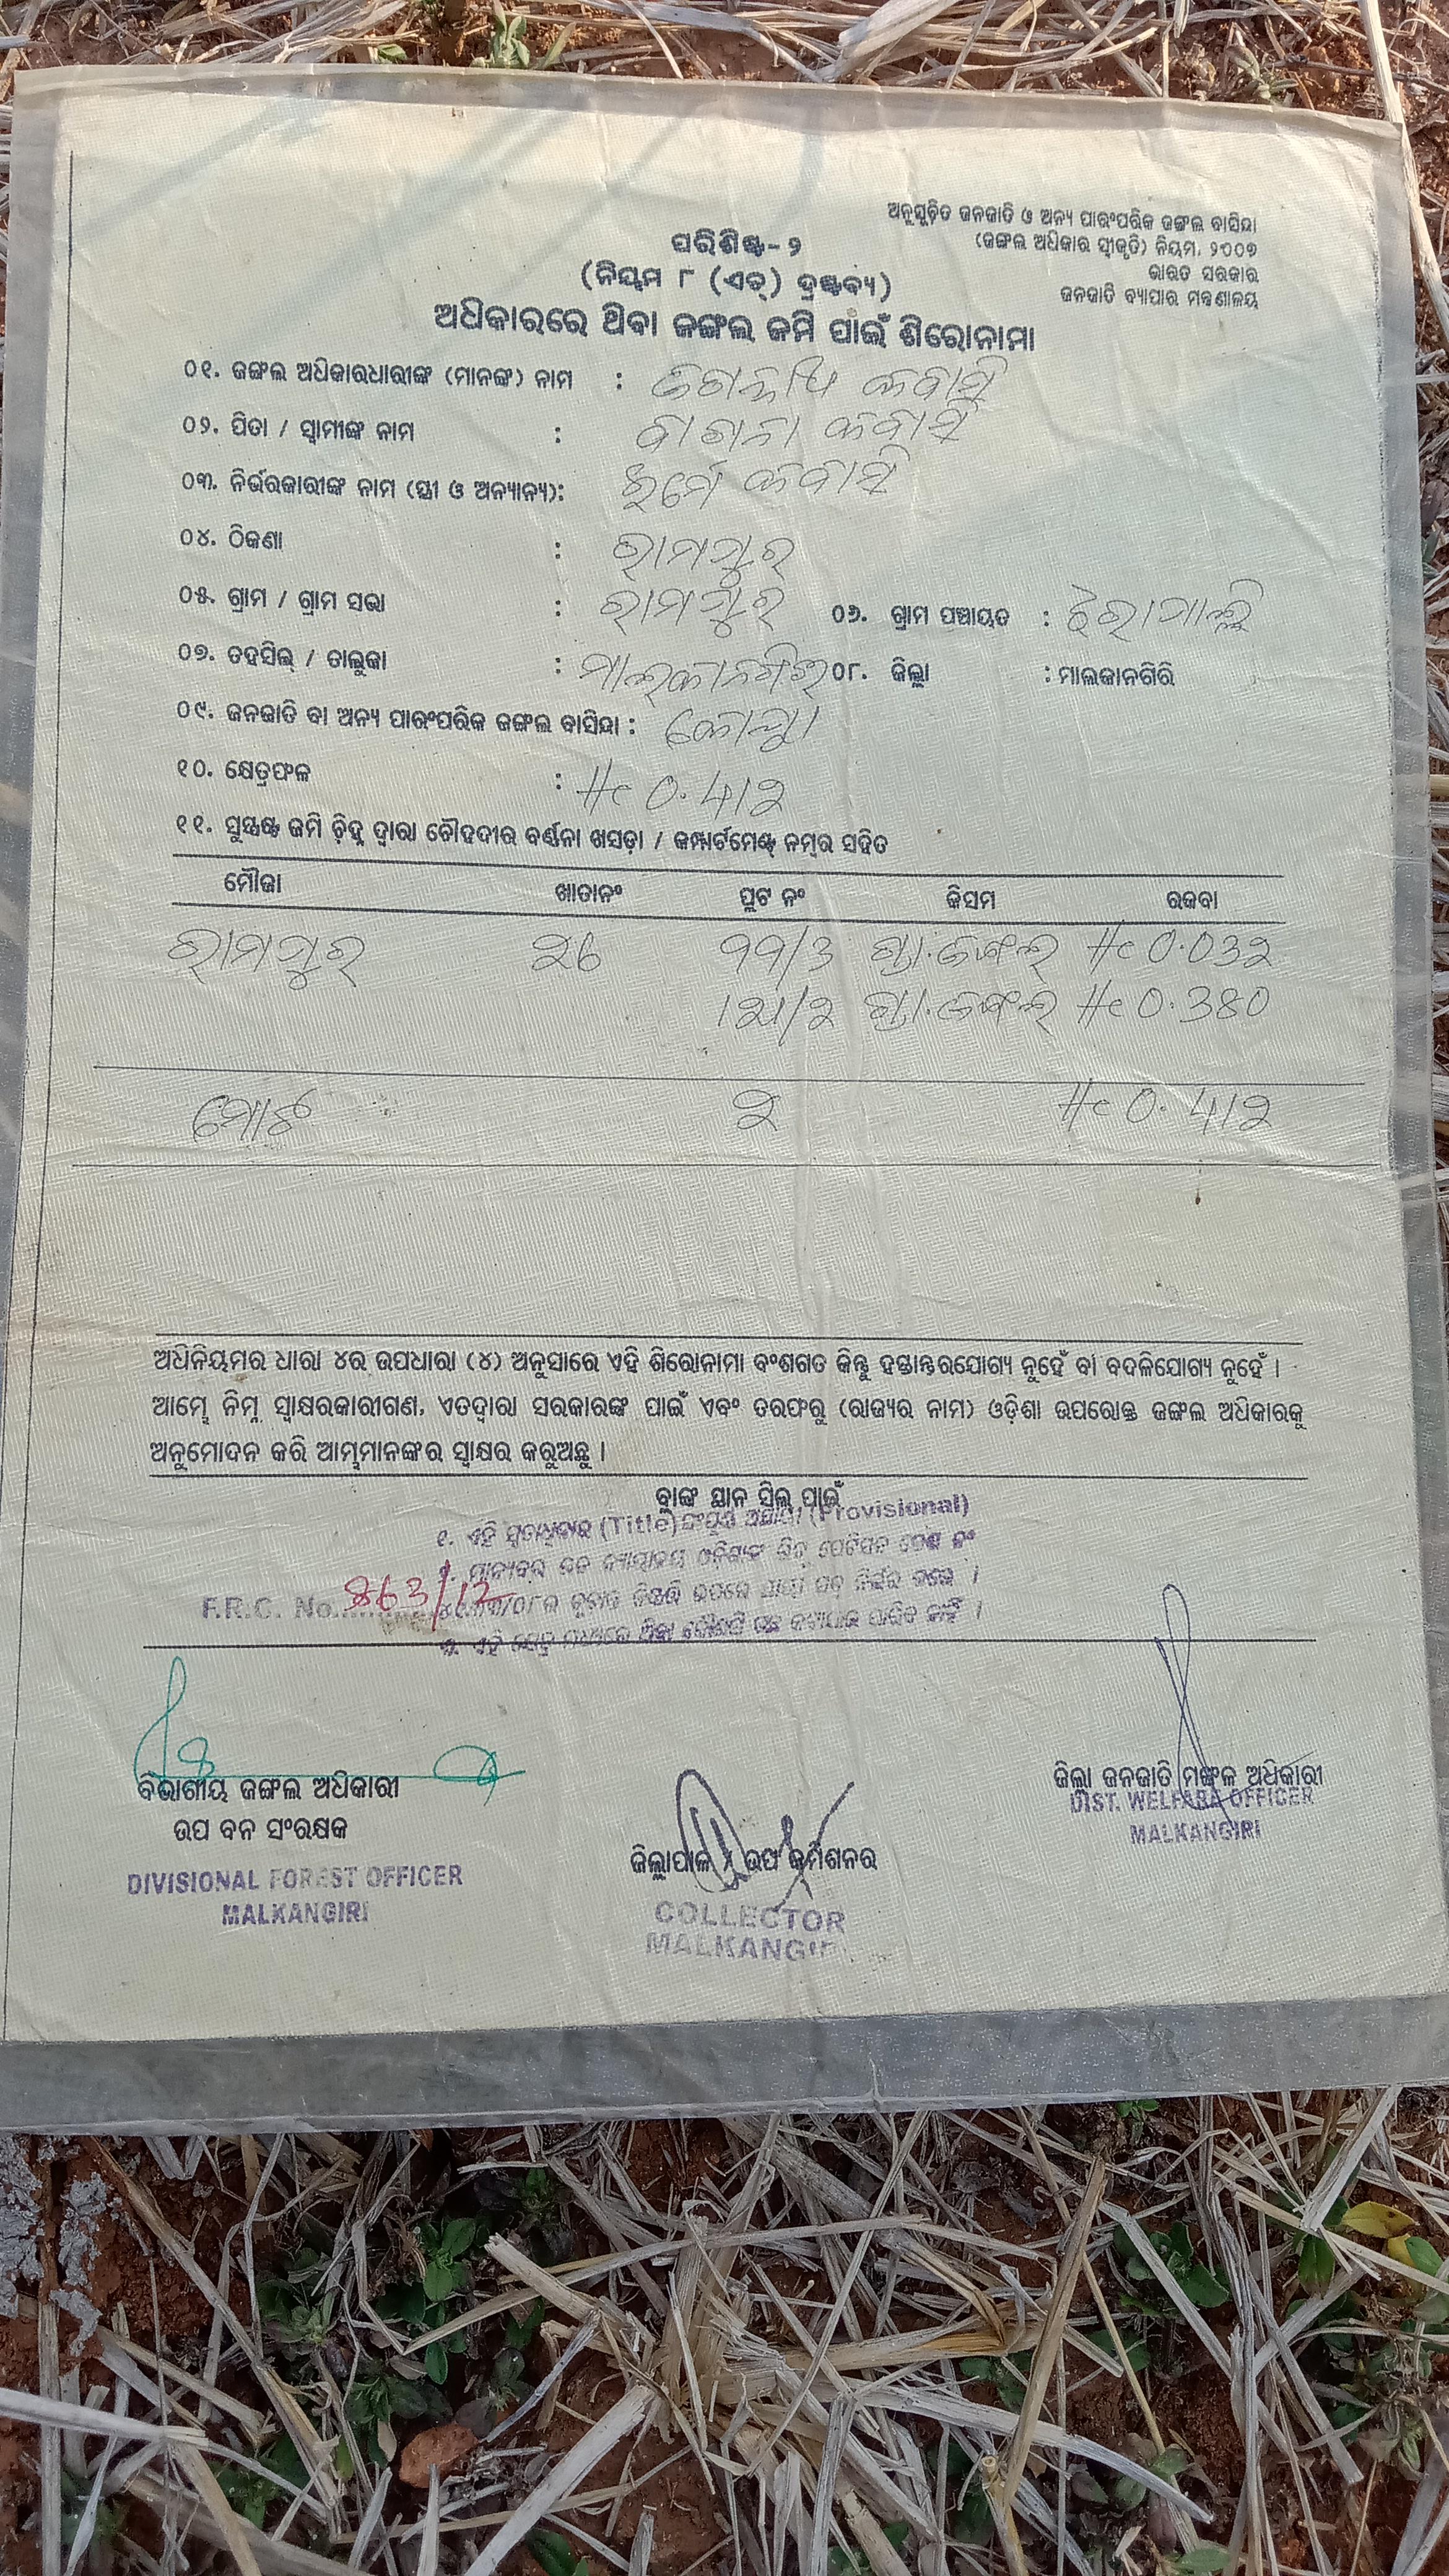 ଅନୁସୂଚିତ ଜନଜାତି ଓ ଅନ୍ୟ ପାରଂପରିକ ଜଙ୍ଗଲ ବାସିନ୍ଦା
(ଜଙ୍ଗଲ ଅଧିକାର ସ୍ୱୀକୃତି) ନିୟମ, ୨୦୦୭
ଭାରତ ସରକାର
ଜନଜାତି ବ୍ୟାପାର ମନ୍ତ୍ରଣାଳୟ
ପରିଶିଷ୍ଟ-୨
(ନିୟମ ୮ (ଏଚ୍) ଦ୍ରଷ୍ଟବ୍ୟ)
ଅଧିକାରରେ ଥିବା ଜଙ୍ଗଲ ଜମି ପାଇଁ ଶିରୋନାମା
୦୧. ଜଙ୍ଗଲ ଅଧିକାରଧାରୀଙ୍କ (ମାନଙ୍କ) ନାମ : କବାସି
୦୨. ପିତା / ସ୍ୱାମୀଙ୍କ ନାମ : କବାସି
୦୩. ନିର୍ଭରକାରୀଙ୍କ ନାମ (ସ୍ତ୍ରୀ ଓ ଅନ୍ୟାନ୍ୟ): କବାସି
୦୪. ଠିକଣା : ରାମପୁର
୦୫. ଗ୍ରାମ / ଗ୍ରାମ ସଭା : ରାମପୁର ୦୬. ଗ୍ରାମ ପଞ୍ଚାୟତ :
୦୭. ତହସିଲ୍ / ତାଲୁକା : ମାଲକାନଗିରି ୦୮. ଜିଲ୍ଲା : ମାଲକାନଗିରି
୦୯. ଜନଜାତି ବା ଅନ୍ୟ ପାରଂପରିକ ଜଙ୍ଗଲ ବାସିନ୍ଦା : କୋୟା
୧୦. କ୍ଷେତ୍ରଫଳ : Hc 0.412
୧୧. ସୁସ୍ପଷ୍ଟ ଜମି ଚିହ୍ନ ଦ୍ୱାରା ଚୌହଦୀର ବର୍ଣ୍ଣନା ଖସଡ଼ା / କମ୍ପାର୍ଟମେଣ୍ଟ ନମ୍ବର ସହିତ
ମୌଜା ଖାତାନଂ ପ୍ଲଟ ନଂ କିସମ ରକବା
ରାମପୁର 26 99/3 ଗ୍ରା.ଜଙ୍ଗଲ Hc 0.032
121/2 ଗ୍ରା.ଜଙ୍ଗଲ Hc 0.380
ମୋଟ 2 Hc 0.412
ଅଧିନିୟମର ଧାରା ୪ର ଉପଧାରା (୪) ଅନୁସାରେ ଏହି ଶିରୋନାମା ବଂଶଗତ କିନ୍ତୁ ହସ୍ତାନ୍ତରଯୋଗ୍ୟ ନୁହେଁ ବା ବଦଳିଯୋଗ୍ୟ ନୁହେଁ ।
ଆମ୍ଭେ ନିମ୍ନ ସ୍ୱାକ୍ଷରକାରୀଗଣ, ଏତଦ୍ୱାରା ସରକାରଙ୍କ ପାଇଁ ଏବଂ ତରଫରୁ (ରାଜ୍ୟର ନାମ) ଓଡ଼ିଶା ଉପରୋକ୍ତ ଜଙ୍ଗଲ ଅଧିକାରକୁ
ଅନୁମୋଦନ କରି ଆମ୍ଭମାନଙ୍କର ସ୍ୱାକ୍ଷର କରୁଅଛୁ ।
ବ୍ଲାଙ୍କ ସ୍ଥାନ ସିଲ୍ ପାଇଁ
୧. ଏହି (Title) (Provisional)
F.R.C. No. 863/12
ବିଭାଗୀୟ ଜଙ୍ଗଲ ଅଧିକାରୀ
ଉପ ବନ ସଂରକ୍ଷକ
DIVISIONAL FOREST OFFICER
MALKANGIRI
ଜିଲ୍ଲାପାଳ / ଉପ କମିଶନର
COLLECTOR
MALKANGIRI
ଜିଲ୍ଲା ଜନଜାତି ମଙ୍ଗଳ ଅଧିକାରୀ
DIST. WELFARE OFFICER
MALKANGIRI